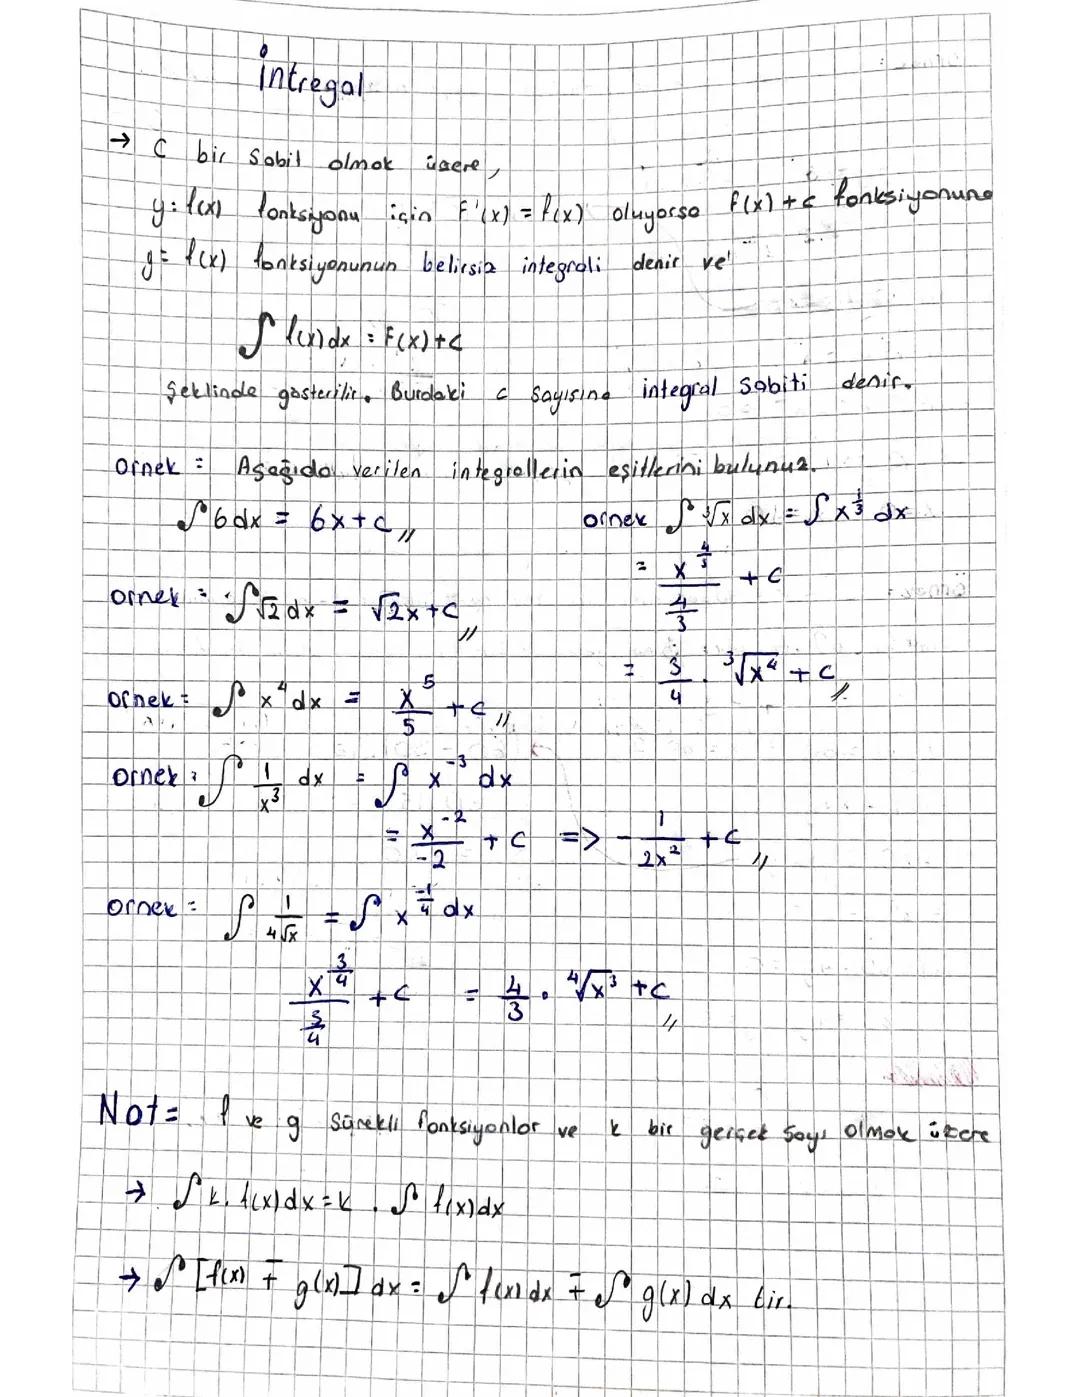 İntregal
→ c bir sabit olmak üsere,
y = f(x) fonksiyonu için F'(x) = f(x) oluyorsa F(x) + c fonksiyonuna
y = f(x) fonksiyonunun belirsiz integrali denir ve
∫ f(x) dx = F(x) + c
şeklinde gösterilir. Burdaki c sayısına integral sabiti denir.
örnek = Aşağıda verilen integrallerin eşitlerini bulunuz.
∫ 6 dx = 6x + c //
örnek = ∫ √2 dx = √2 x + c //
örnek = ∫ x⁴ dx = x⁵/5 + c //
örnek ∫ ³√x dx = ∫ x^(1/3) dx
= x^(4/3) / (4/3) + c
= 3/4 . ³√x⁴ + c //
örnek = ∫ 1/x³ dx = ∫ x⁻³ dx
= x⁻²/-2 + c => - 1/2x² + c //
örnek = ∫ 1/⁴√x = ∫ x^(-1/4) dx
x^(3/4) / (3/4) + c = 4/3 . ⁴√x³ + c //
Not = f ve g sürekli fonksiyonlar ve k bir gerçek sayı olmak üzere
→ ∫ k. f(x) dx = k . ∫ f(x) dx
→ ∫ [f(x) ∓ g(x)] dx = ∫ f(x) dx ∓ ∫ g(x) dx tir.